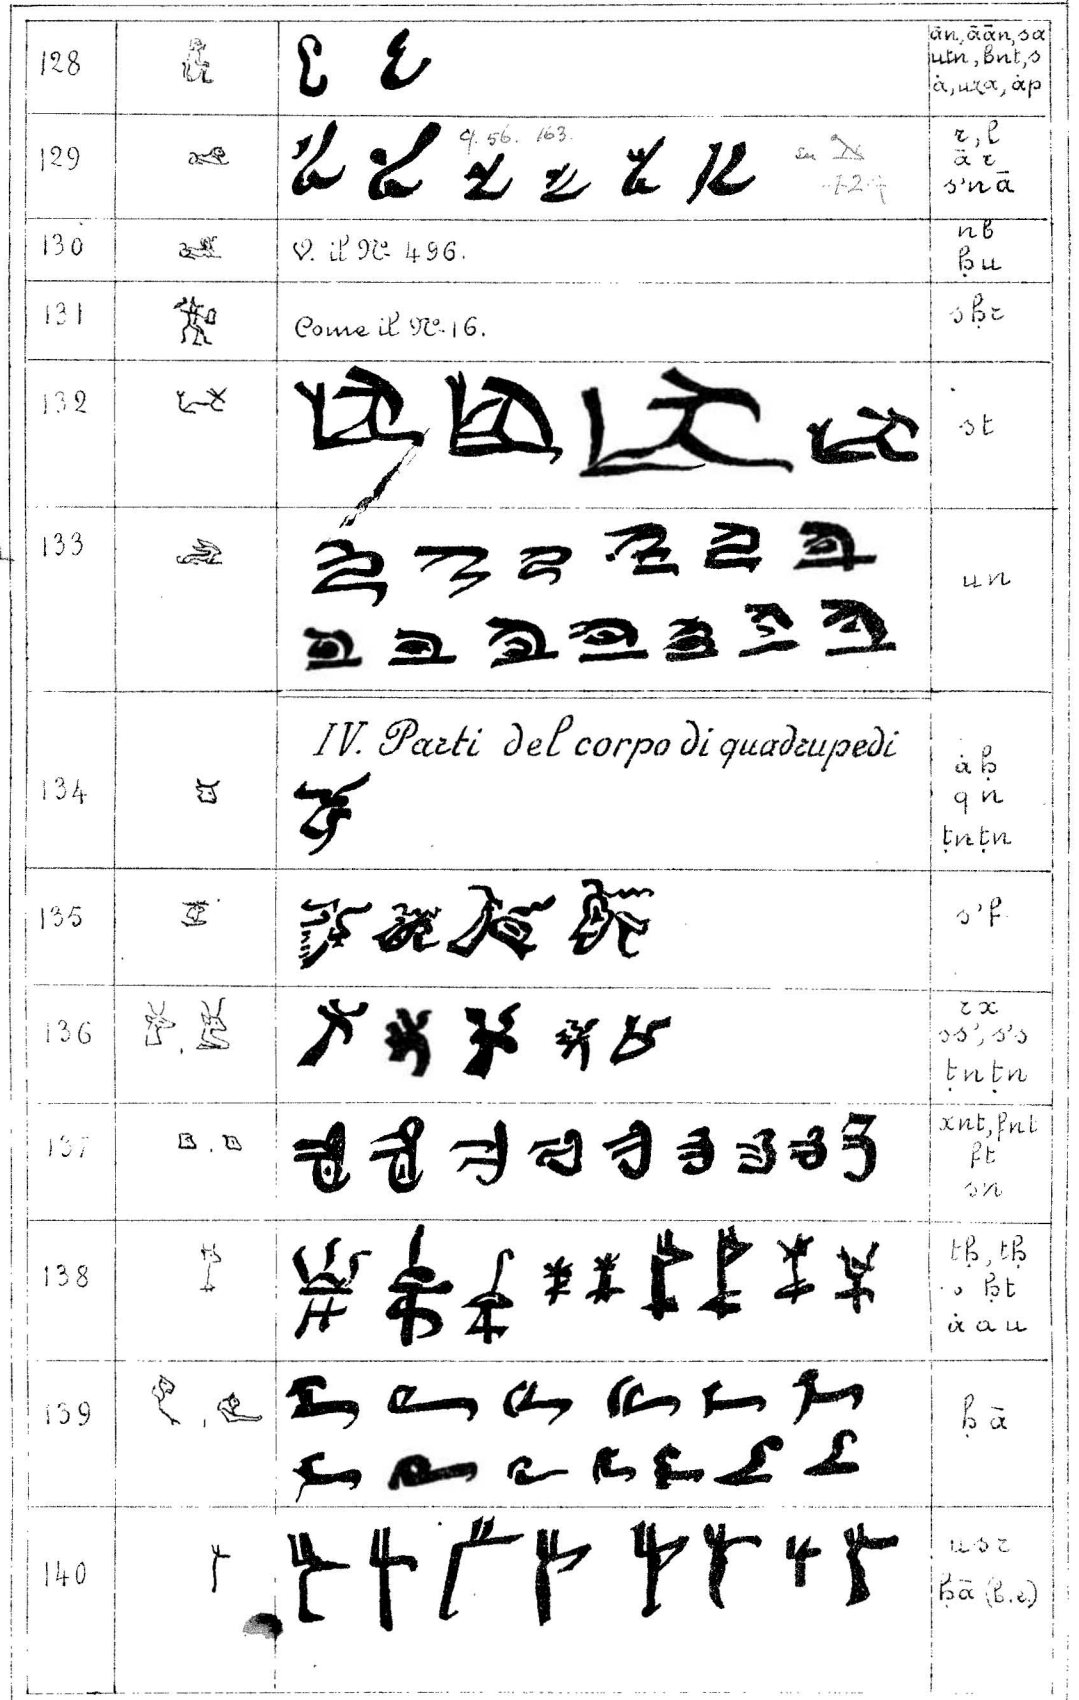 128
ān, āān, sa
utn, bnt, s
ȧ, uza, ȧp
129
9. 56. 163.
r, l
ā r
s'n ā
130
V. il N.° 496.
nb
ḥu
131
Come il N.° 16.
sḥr
132
st
133
un
IV. Parti del corpo di quadrupedi
134
ȧḥ
qn
ṭnṭn
135
s'f
136
rx
ss', s's
ṭnṭn
137
xnt, fnt
ft
sn
138
tḥ, tḥ
s ḥt
ȧau
139
ḥā
140
usr
ḥā (b.e.)